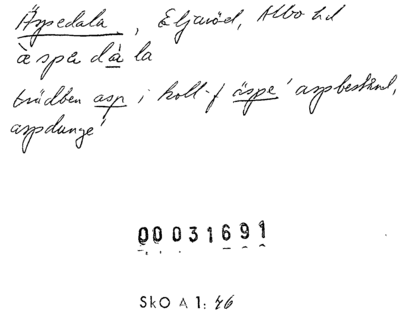 Äspedala, Eljaröd, Albo hd
àspa dà la
trädben asp i koll-f äspe ’aspbestånd,
aspdunge’
00031691
SkO A 1: 46